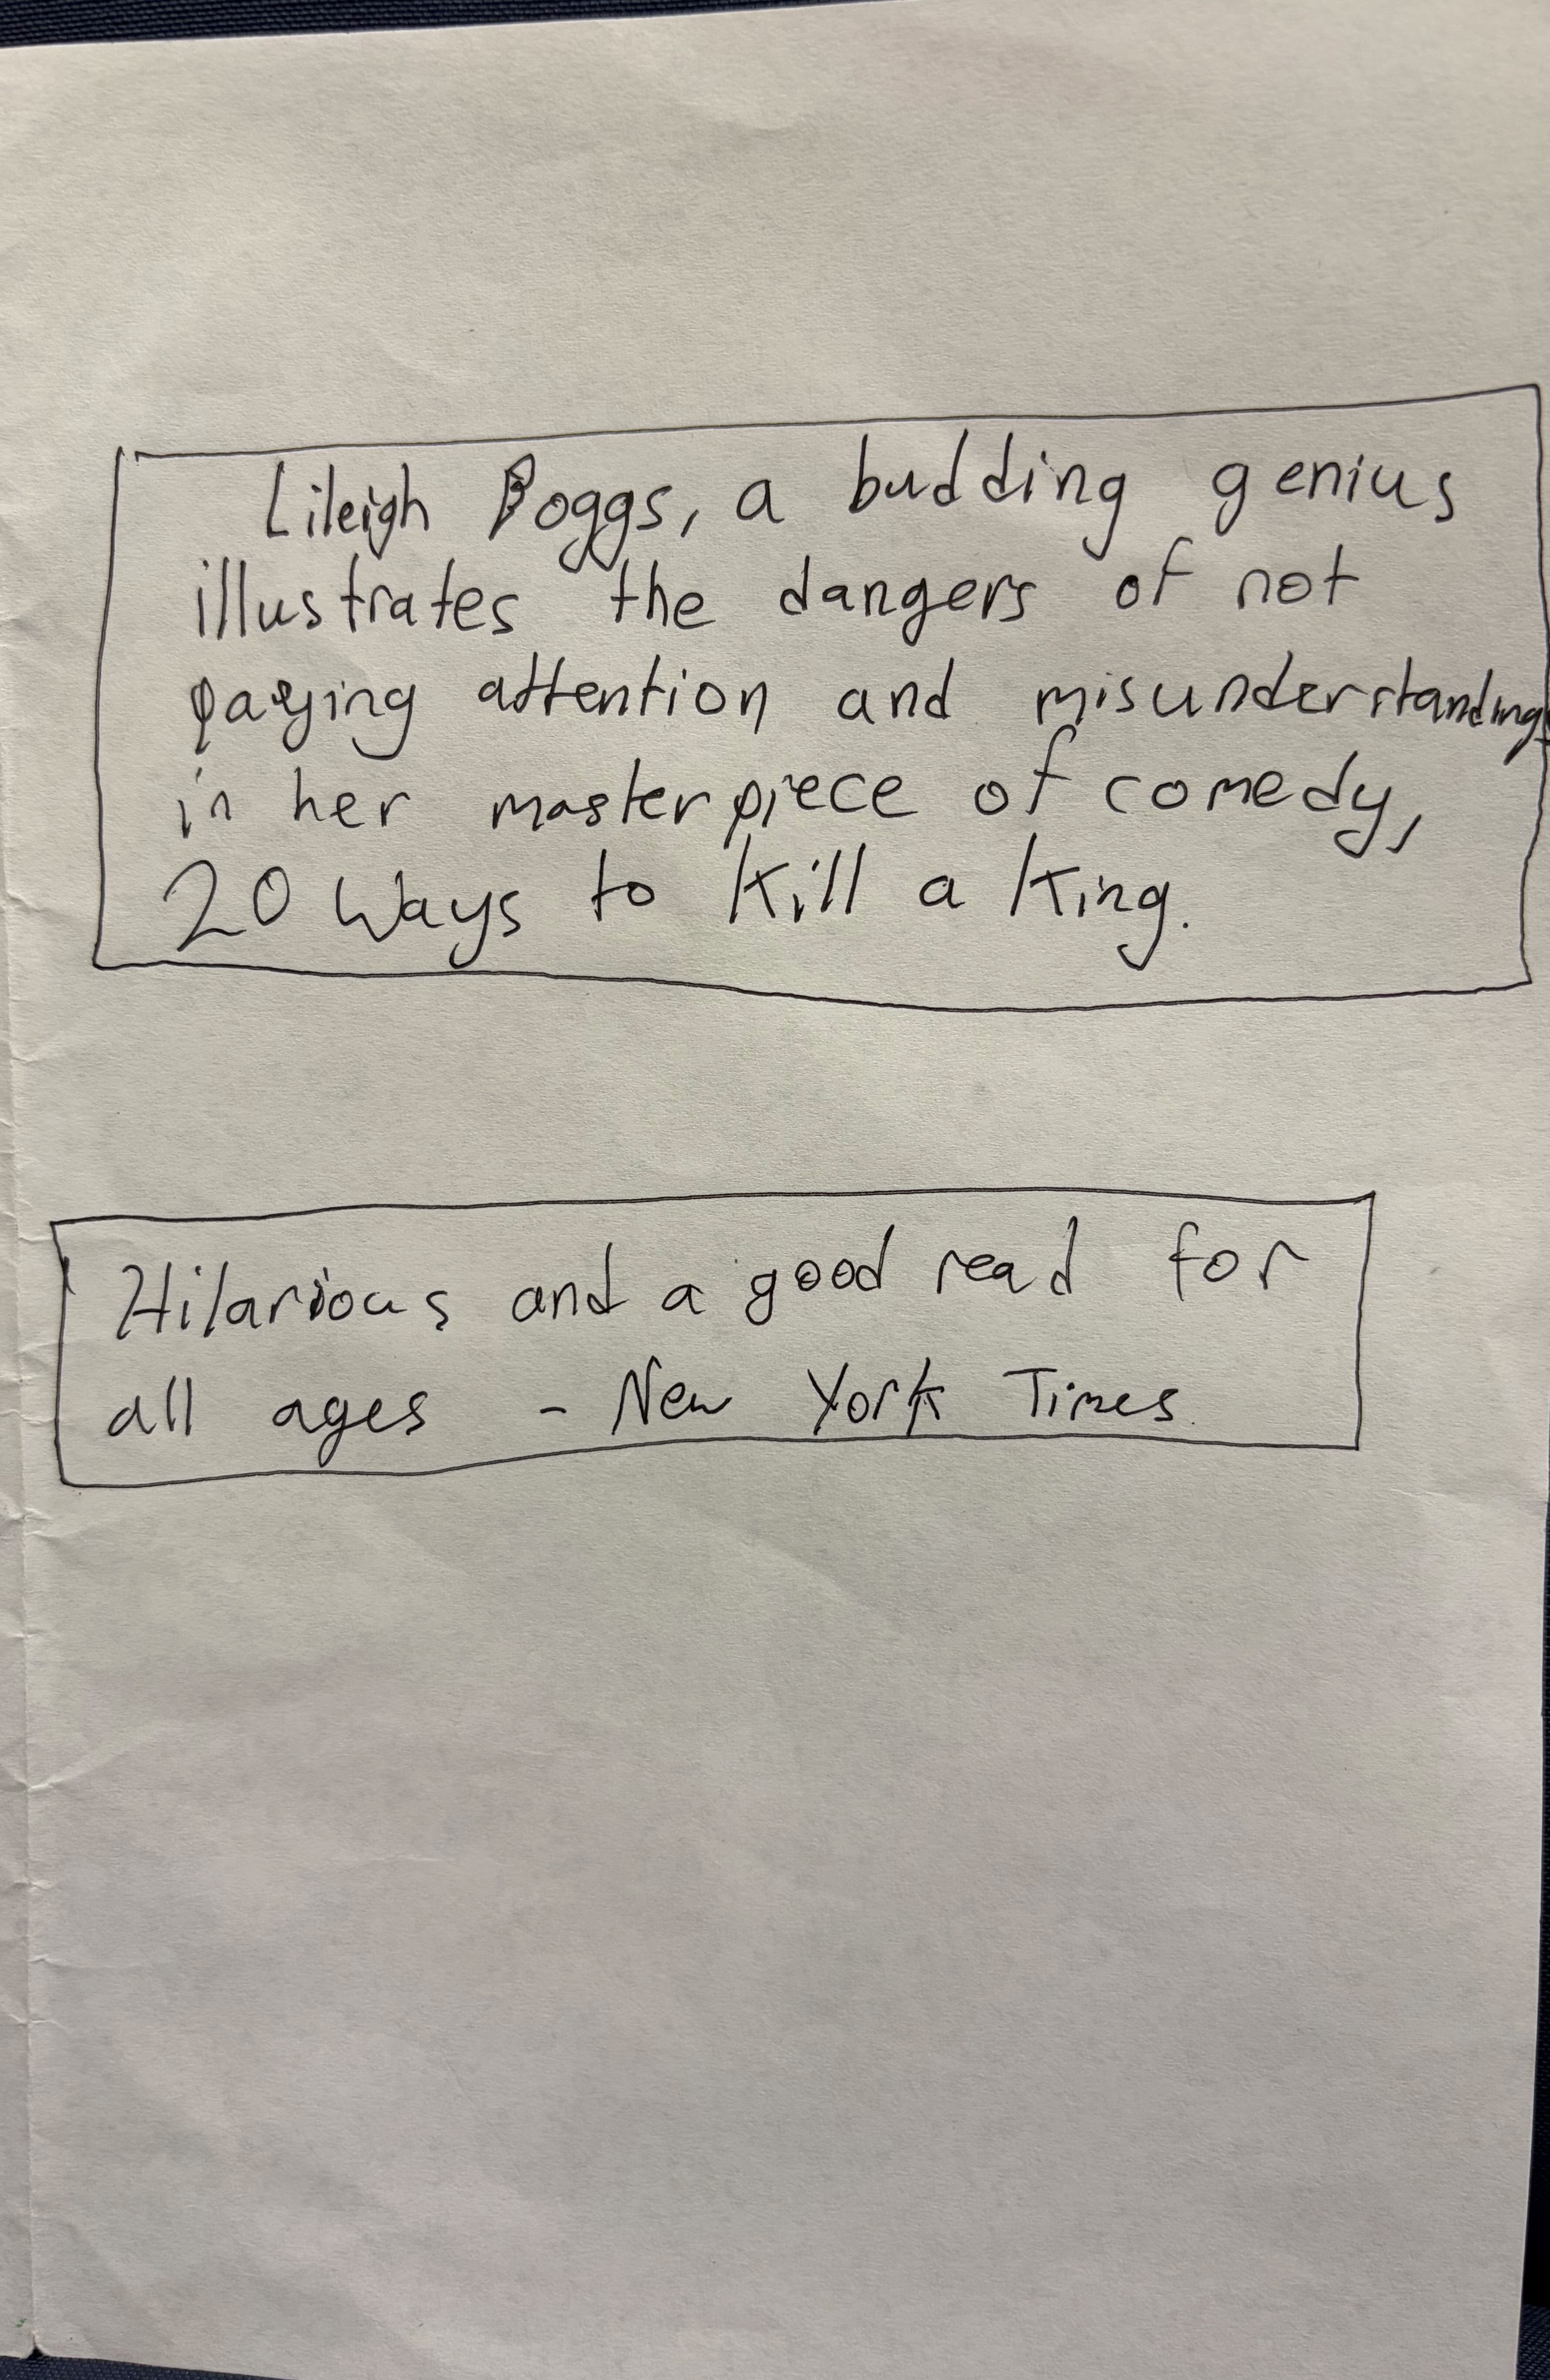 Lileigh Boggs, a budding genius
illustrates the dangers of not
paying attention and misunderstandings
in her masterpiece of comedy,
20 Ways to Kill a King.
Hilarious and a good read for
all ages - New York Times